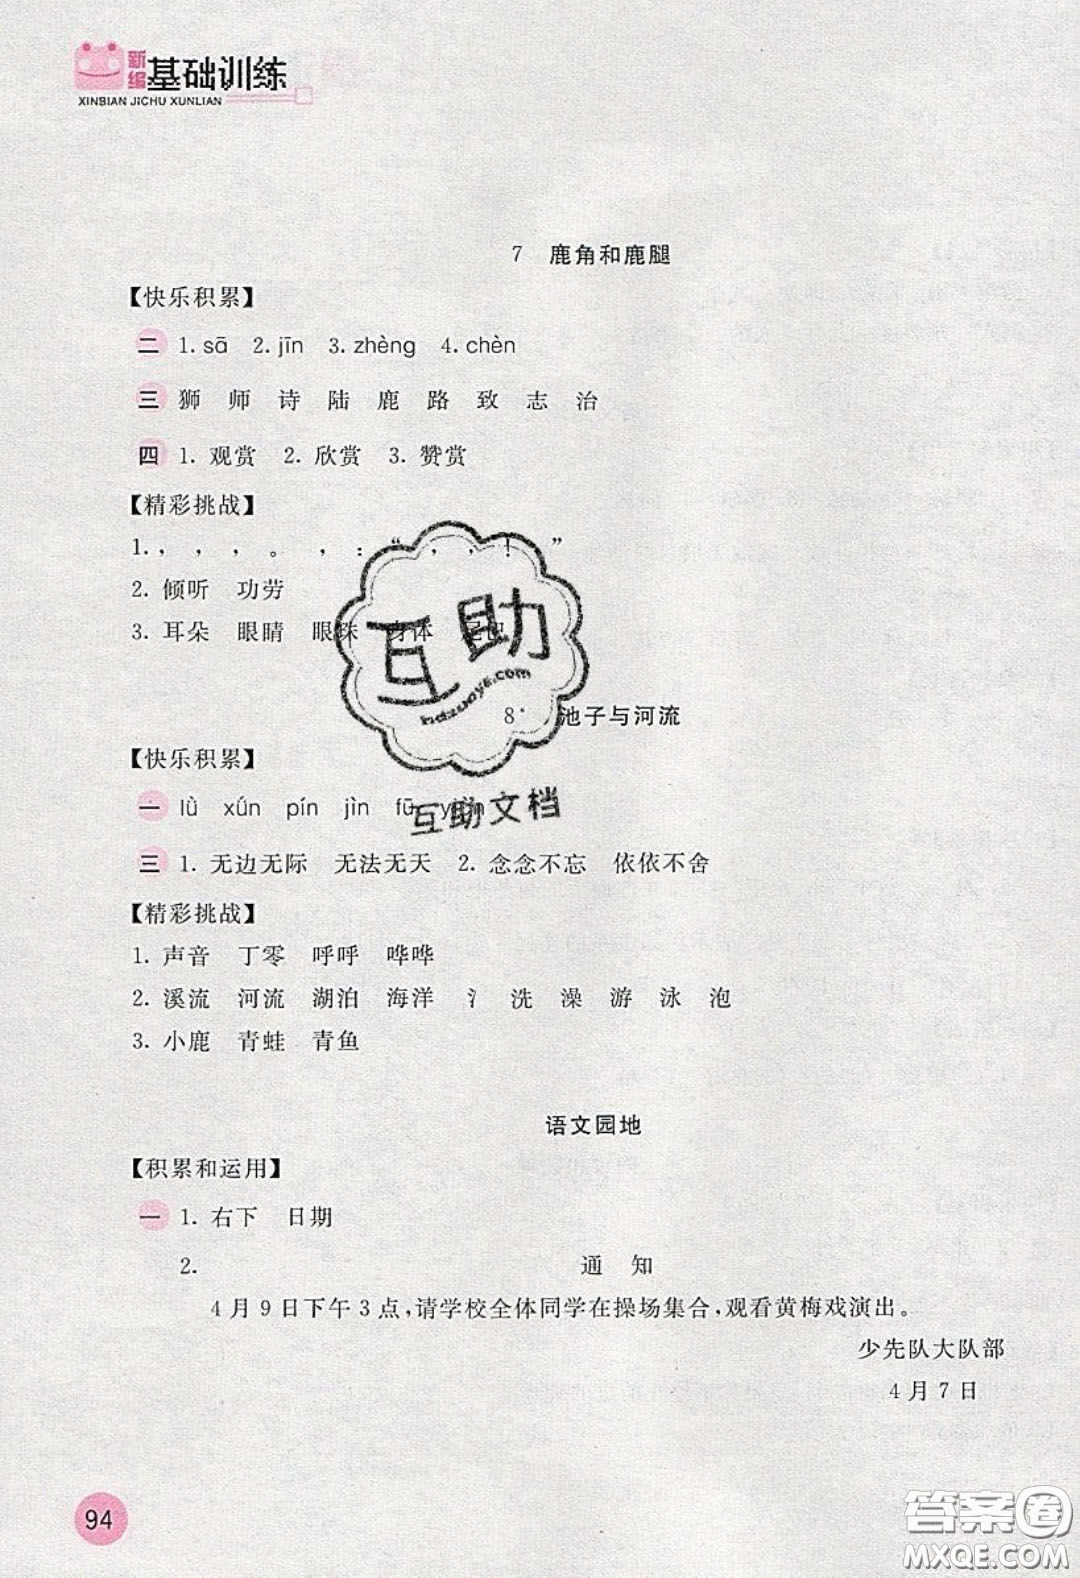 新编 基础训练
XINBIAN JICHU XUNLIAN
7 鹿角和鹿腿
【快乐积累】
二 1.sā 2.jīn 3.zhèng 4.chèn
三 狮 师 诗 陆 鹿 路 致 志 治
四 1. 观赏 2. 欣赏 3. 赞赏
【精彩挑战】
1. , , , 。 , : “ , , ! ”
2. 倾听 功劳
3. 耳朵 眼睛 眼珠 身体 尾巴
8* 池子与河流
【快乐积累】
一 lǜ xún pín jìn fū
三 1. 无边无际 无法无天 2. 念念不忘 依依不舍
【精彩挑战】
1. 声音 丁零 呼呼 哗哗
2. 溪流 河流 湖泊 海洋 氵 洗 澡 游 泳 泡
3. 小鹿 青蛙 青鱼
语文园地
【积累和运用】
一 1. 右下 日期
2. 通 知
4月9日下午3点,请学校全体同学在操场集合,观看黄梅戏演出。
少先队大队部
4月7日
94
互助
hdzuoye.com
互助文档
答案圈
MXQE.COM